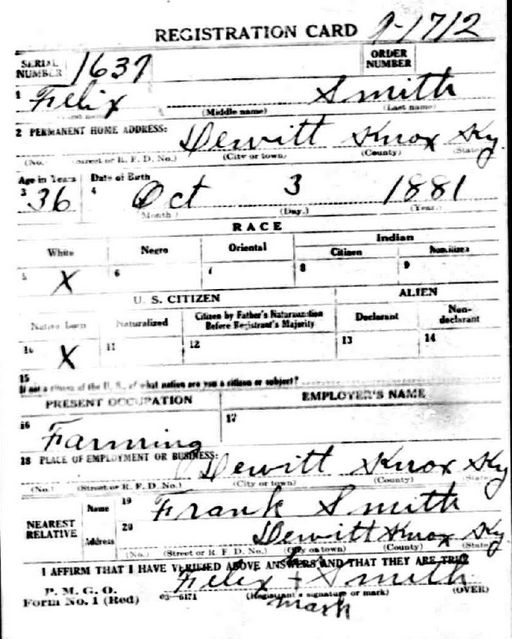 REGISTRATION CARD 9-1712
SERIAL NUMBER 1637 ORDER NUMBER
1 Felix Smith
(First name) (Middle name) (Last name)
2 PERMANENT HOME ADDRESS: Dewitt Knox Ky.
(No.) (Street or R. F. D. No.) (City or town) (County) (State)
Age in Years Date of Birth
3 36 4 Oct 3 1881
(Month) (Day.) (Year.)
RACE
White Negro Oriental Indian
Citizen Noncitizen
5 X 6 7 8 9
U. S. CITIZEN ALIEN
Native Born Naturalized Citizen by Father's Naturalization Before Registrant's Majority Declarant Non-declarant
10 X 11 12 13 14
15
If not a citizen of the U. S., of what nation are you a citizen or subject?
PRESENT OCCUPATION EMPLOYER'S NAME
16 Farming 17
18 PLACE OF EMPLOYMENT OR BUSINESS: Dewitt Knox Ky
(No.) (Street or R. F. D. No.) (City or town) (County) (State)
NEAREST RELATIVE Name 19 Frank Smith
Address 20 Dewitt Knox Ky
(No.) (Street or R. F. D. No.) (City or town) (County) (State)
I AFFIRM THAT I HAVE VERIFIED ABOVE ANSWERS AND THAT THEY ARE TRUE
Felix + Smith
P. M. G. O.
Form No. 1 (Red) 03-6171 (Registrant's signature or mark) (OVER)
mark